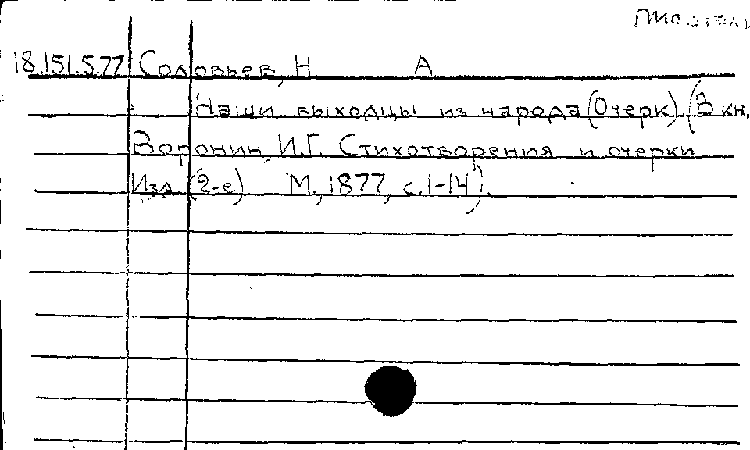 18.151.5.77 Соловьев, Н А
Наши выходцы из народа (Очерк). (В кн.
Воронин, И.Г. Стихотворения и очерки
Изд. (2-е) М., 1877, с. 1-14).